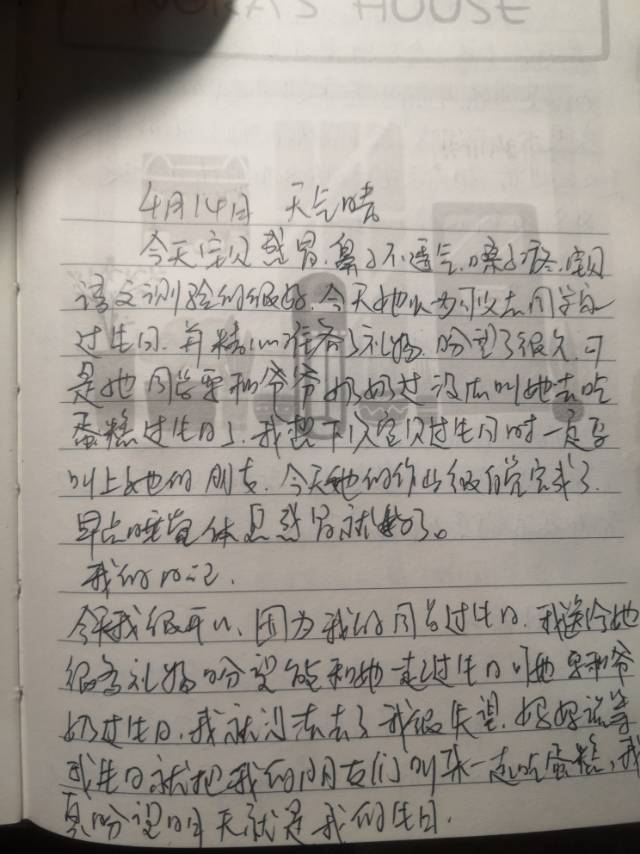 NORA'S HOUSE
4月14日 天气晴
今天宝贝感冒,鼻子不通气,嗓子疼,宝贝
语文测验的很好,今天她以为可以去同学家
过生日,并精心准备了礼物,吩望了很久,可
是她同学要和爷爷奶奶过没法叫她去吃
蛋糕过生日了,我想下次宝贝过生日时一定要
叫上她的朋友,今天她的作业很自觉完成了,
早点睡觉休息感冒就好了。
我的日记,
今天我很开心,因为我的同学过生日,我送给她
很多礼物吩望能和她一起过生日可她要和爷
奶过生日,我就没法去了我很失望,妈妈说等
我生日就把我的朋友们叫来一起吃蛋糕,我
真吩望明天就是我的生日.